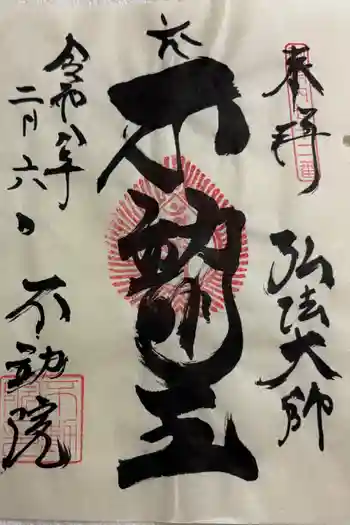 奉拝
弘法大師
於
不動王
令和八年
二月六日
不動院